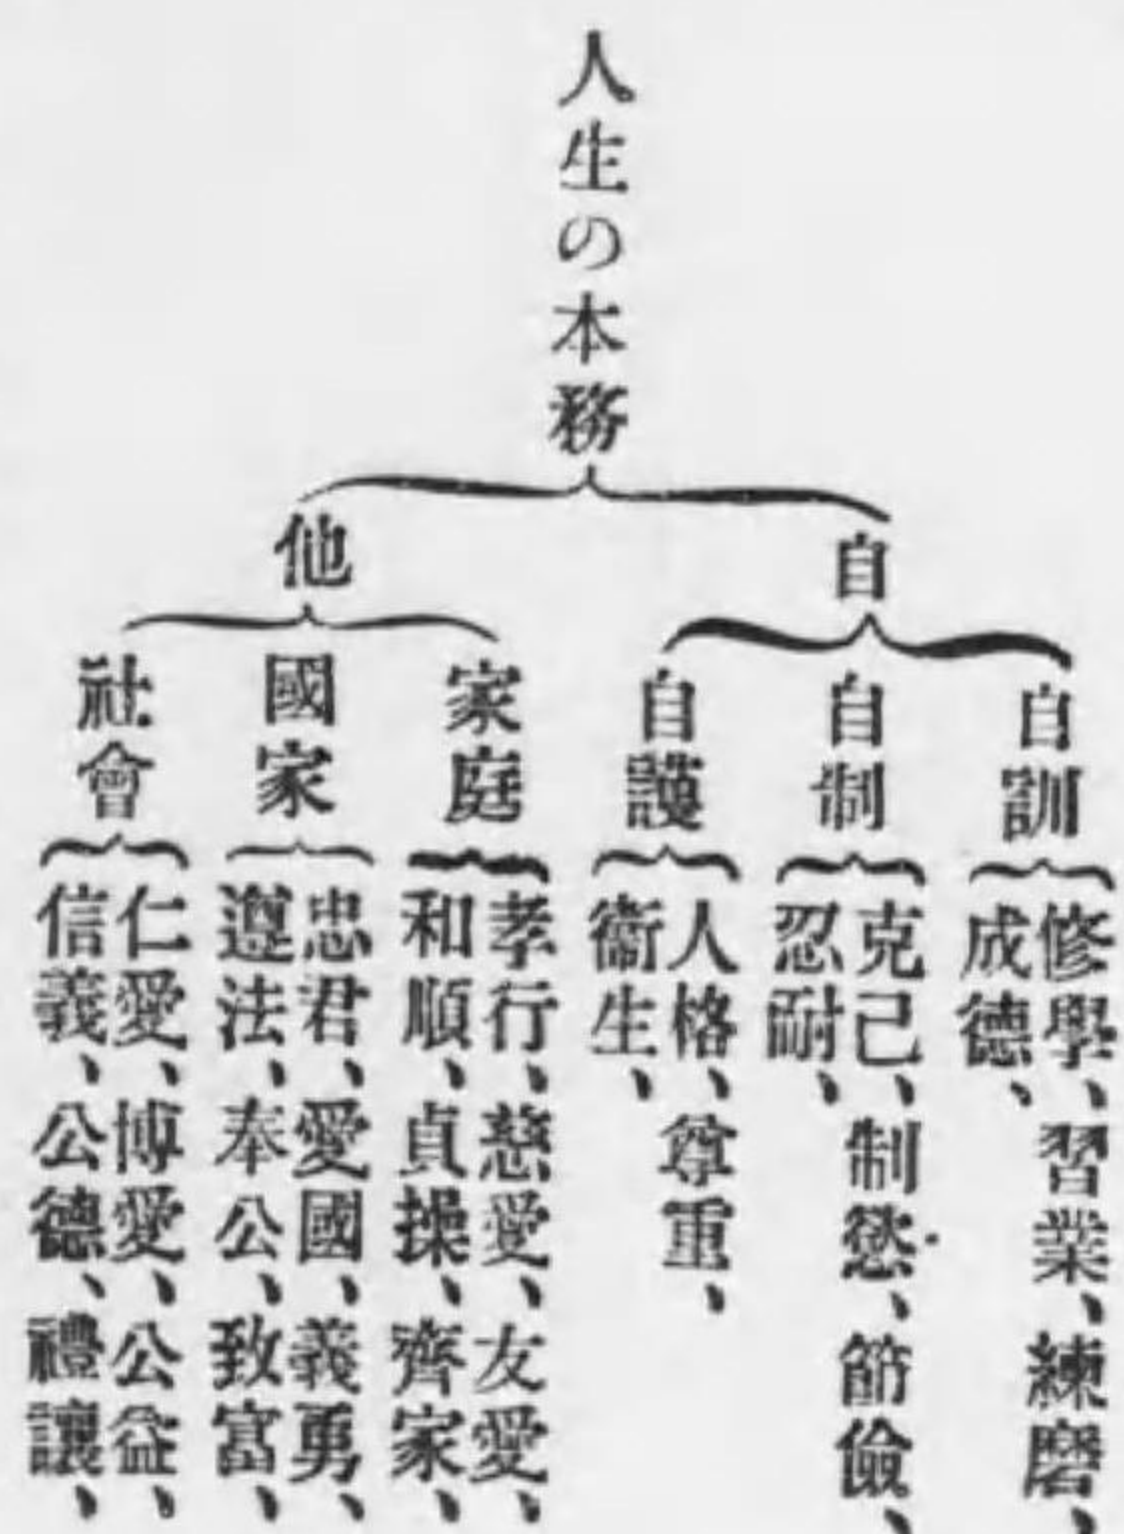 人生の本務
自
自訓
修學、習業、練磨、
成德、
自制
克己、制慾、節儉、
忍耐、
自護
人格、尊重、
衞生、
他
家庭
孝行、慈愛、友愛、
和順、貞操、齊家、
國家
忠君、愛國、義勇、
遵法、奉公、致富、
社會
仁愛、博愛、公益、
信義、公德、禮讓、